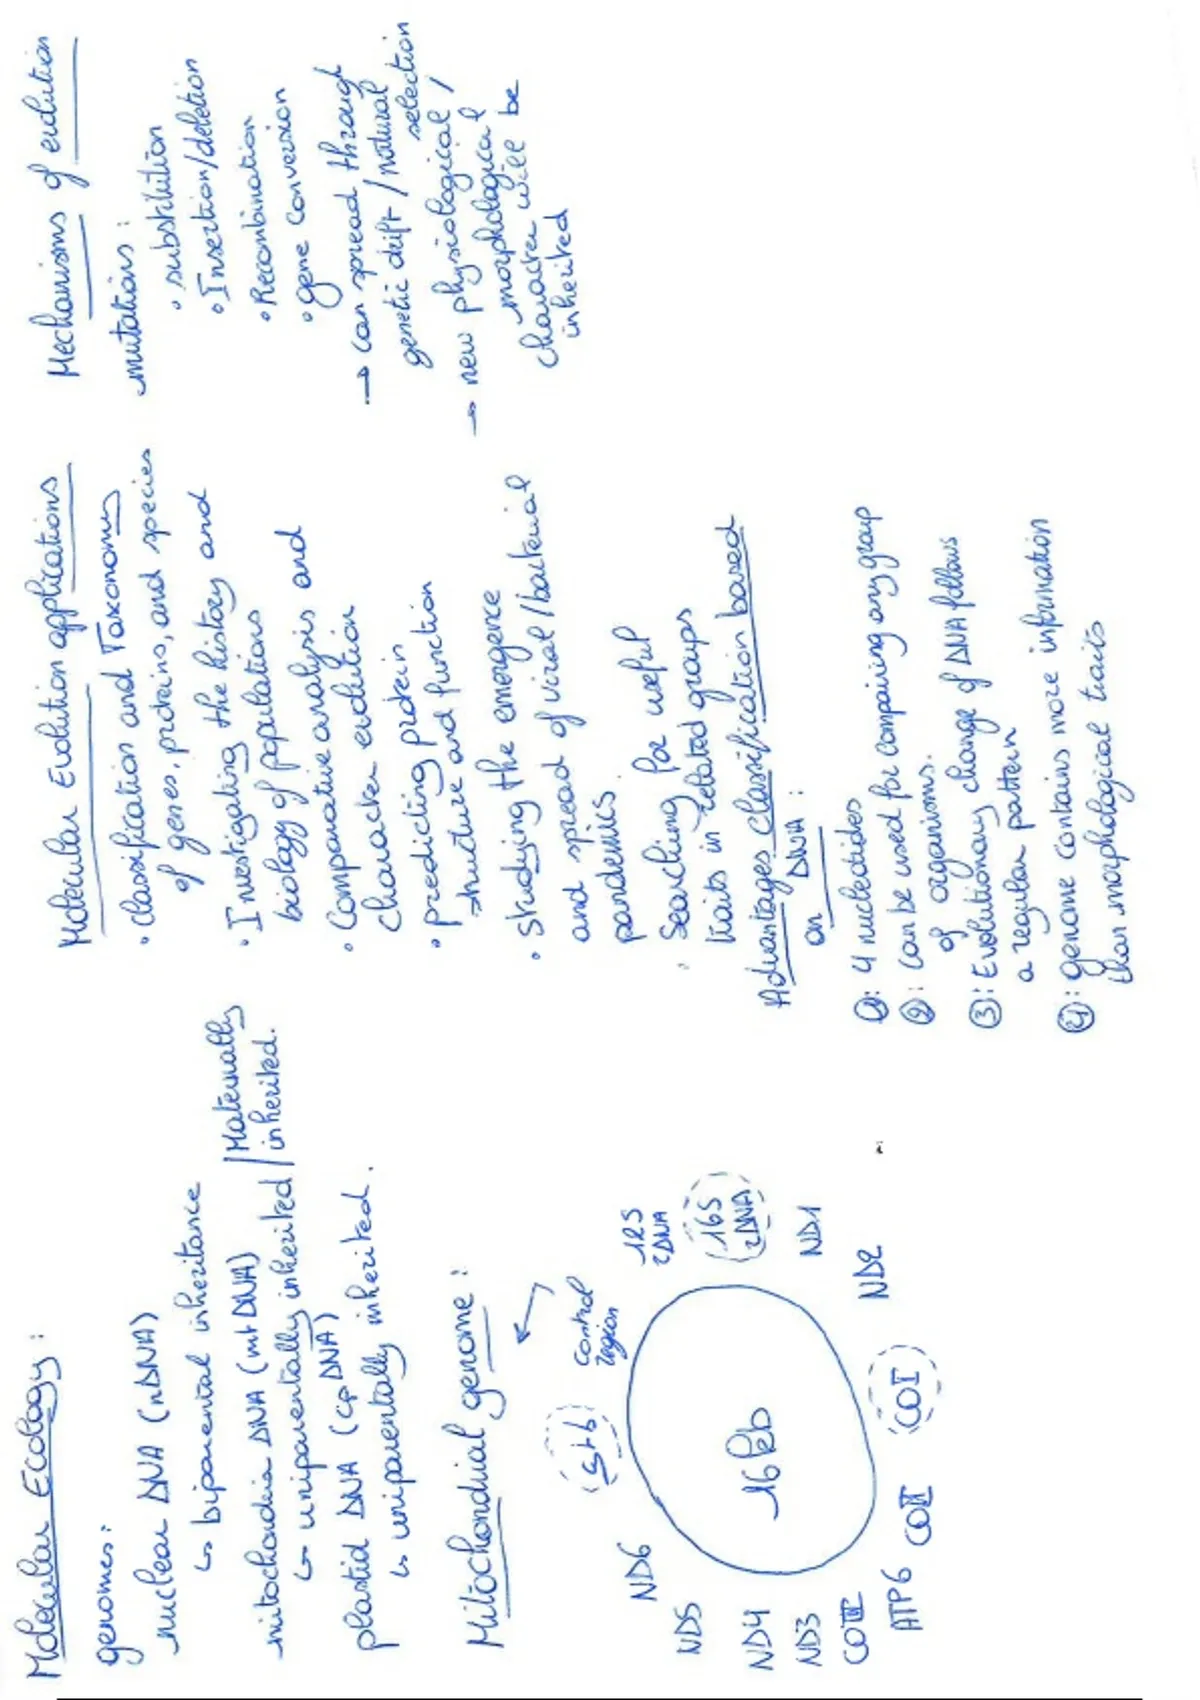 Molecular Ecology:
genomes:
nuclear DNA (nDNA)
↳ biparental inheritance
mitochondria DNA (mtDNA)
↳ uniparentally inherited / Maternally inherited.
plastid DNA (cpDNA)
↳ uniparentally inherited.
Mitochondrial genome:
Cytb
Control region
12S rDNA
16S rDNA
ND1
ND2
COI
COII
ATP6
COIII
ND3
ND4
ND5
ND6
16kb
Molecular Evolution applications
• classification and Taxonomy
of genes, proteins, and species
• Investigating the history and
biology of populations
• Comparative analysis and
character evolution
• predicting protein
structure and function
• Studying the emergence
and spread of viral/bacterial
pandemics.
• Searching for useful
traits in related groups
Advantages classification based
on DNA:
①: 4 nucleotides
②: can be used for comparing any group
of organisms.
③: Evolutionary change of DNA follows
a regular pattern
④: genome contains more information
than morphological traits
Mechanisms of evolution
mutations:
• substitution
• Insertion/deletion
• Recombination
• gene conversion
→ can spread through
genetic drift / natural
selection
→ new physiological /
morphological
character will be
inherited